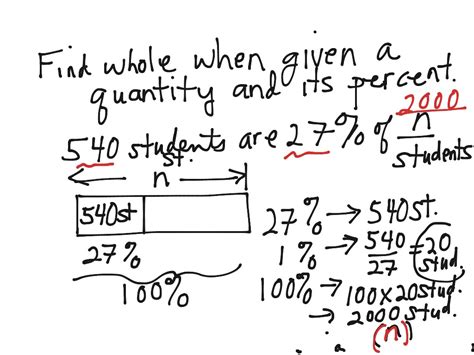 Find whole when given a
quantity and its percent.
2000
540 students are 27% of n
students
st.
n
540st
27%
100%
27% → 540st.
1% → 540/27 = 20
stud.
100% → 100×20stud.
→ 2000 stud.
(n)